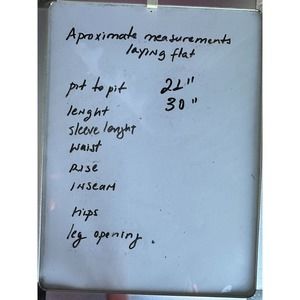 Aproximate measurements
laying flat
pit to pit 21"
lenght 30"
sleeve lenght
waist
Rise
inseam
hips
leg opening